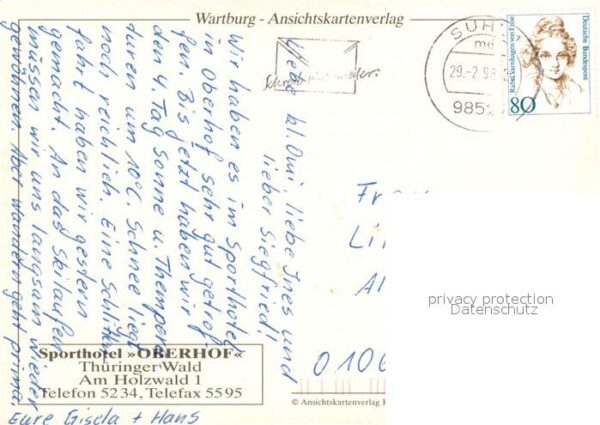 Wartburg - Ansichtskartenverlag
Liebe kl. Omi, liebe Ines und
lieber Siegfried!
Wir haben es im Sporthotel
in Oberhof sehr gut getrof-
fen. Bis jetzt haben wir
den 4. Tag Sonne u. Tempera-
turen um 10C. Schnee liegt
noch reichlich. Eine Schlitten
fahrt haben wir gestern
gemacht. An das Skilaufen
müssen wir uns langsam wieder
gewöhnen. Aber wandern geht prima.
Eure Gisela + Hans
Sporthotel »OBERHOF«
Thüringer Wald
Am Holzwald 1
Telefon 5234, Telefax 5595
Schreib mal wieder.
SUH
29.-2.96
985
Deutsche Bundespost
Rahel Varnhagen von Ense
80
Fra
Li
A
0106
privacy protection
Datenschutz
© Ansichtskartenverlag